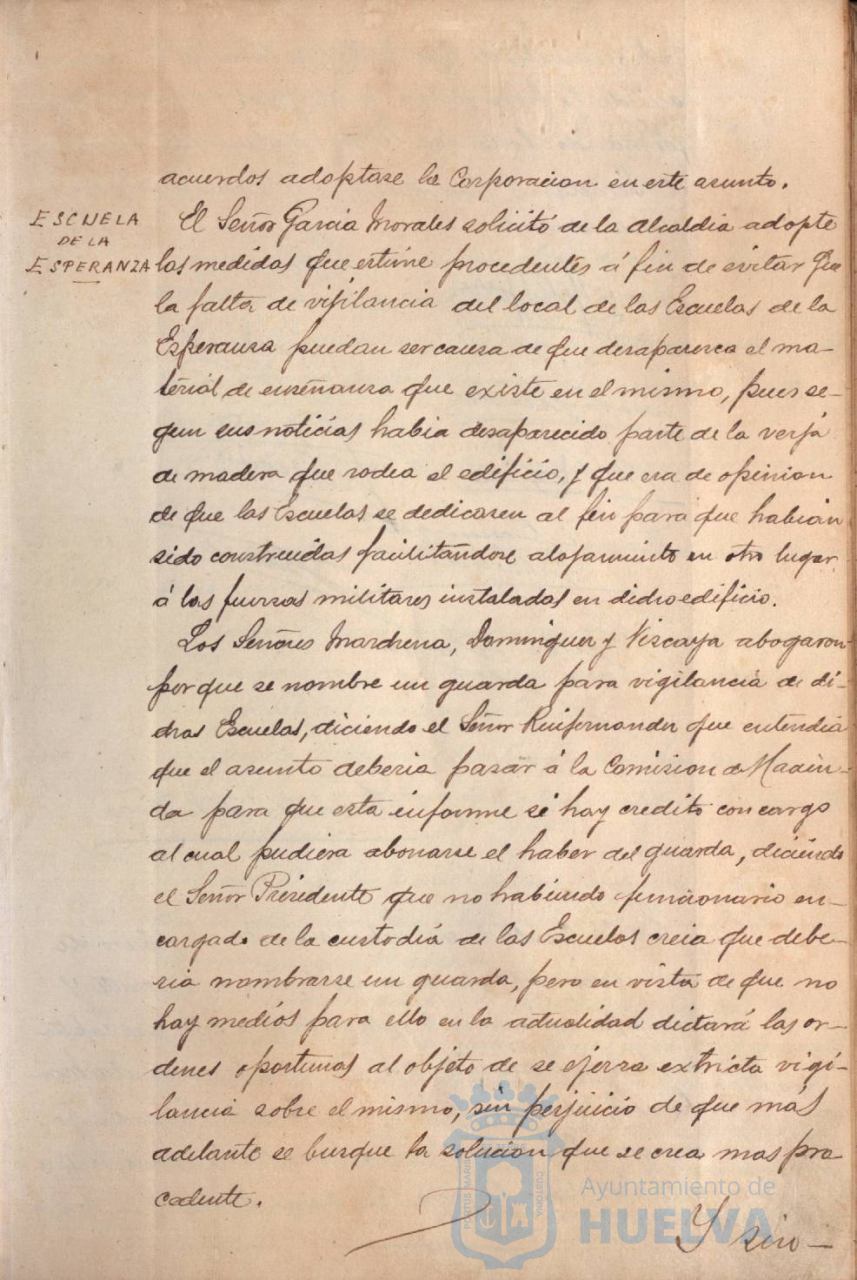 acuerdos adoptase la Corporacion en este asunto.
ESCUELA
DE LA
ESPERANZA
El Señor Garcia Morales solicitó de la Alcaldia adopte
las medidas que estime procedentes á fin de evitar que
la falta de vijilancia del local de las Escuelas de la
Esperansa puedan ser causa de que desaparesca el ma-
terial de enseñansa que existe en el mismo, pues se-
gun sus noticias habia desaparecido parte de la verja
de madera que rodea el edificio, y que era de opinion
de que las Escuelas se dedicasen al fin para que habian
sido construidas facilitandose alojamiento en otro lugar
á las fuersas militares instaladas en dicho edificio.
Los Señores Marchena, Dominguez y Viscaya abogaron
porque se nombre un guarda para vigilancia de di-
chas Escuelas, diciendo el Señor Ruifernandez que entendia
que el asunto deberia pasar á la Comision de Hacien-
da para que esta informe si hay credito con cargo
al cual pudiera abonarse el haber del guarda, diciendo
el Señor Presidente que no habiendo funcionario en-
cargado de la custodia de las Escuelas creia que debe-
ria nombrarse un guarda, pero en vista de que no
hay medios para ello en la actualidad dictará las or-
denes oportunas al objeto de se ejersa extricta vigi-
lancia sobre el mismo, sin perjuicio de que más
adelante se busque la solucion que se crea mas pro-
cedente.
Y sien-
Ayuntamiento de
HUELVA